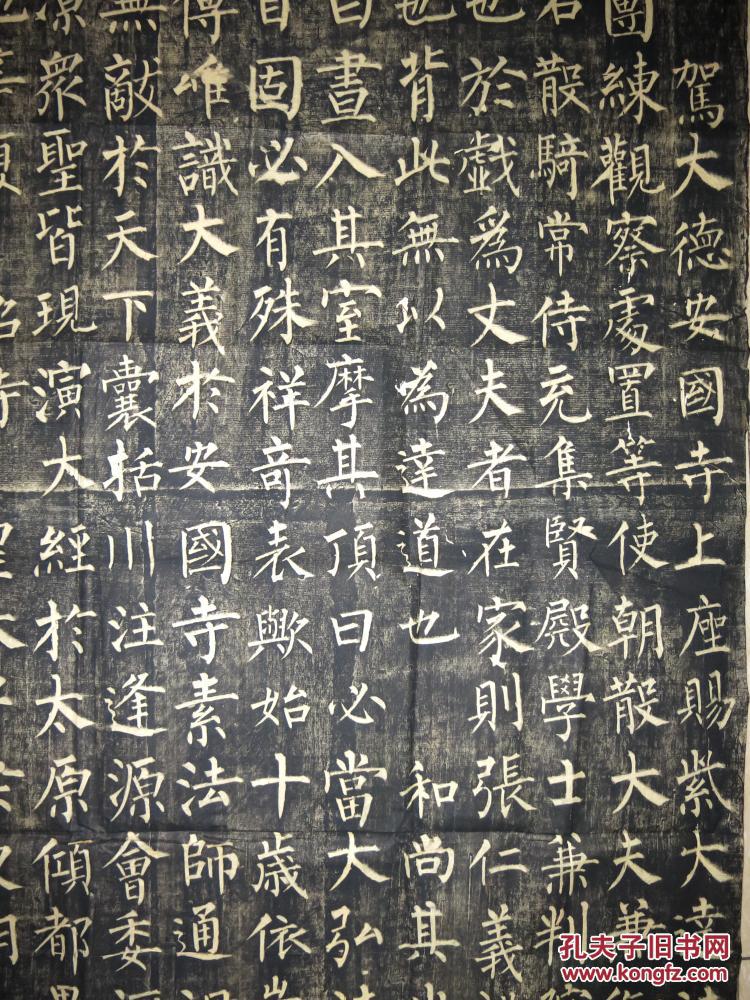 駕大德安國寺上座賜紫大達
團練觀察處置等使朝散大夫兼
散騎常侍充集賢殿學士兼判院
也於戲為丈夫者在家則張仁義
也背此無以為達道也 和尚其出
曰晝入其室摩其頂曰必當大弘法
目固必有殊祥奇表歟始十歲依崇
傳唯識大義於安國寺素法師通涅
無敵於天下囊括川注逢源會委
涼眾聖皆現演大經於太原傾都畢
孔夫子旧书网
www.kongfz.com